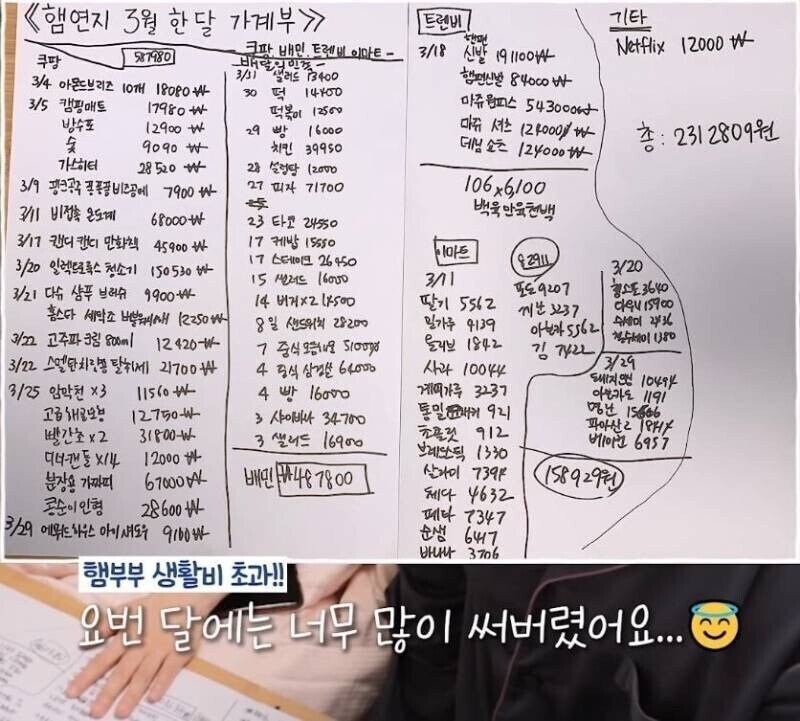 《햄연지 3월 한달 가계부》
쿠팡 587980
3/4 아몬드브리즈 10개 18080₩
3/5 캠핑매트 17980₩
방수포 12900₩
숯 9090₩
가스히터 28520₩
3/9 7900₩
3/11 비접촉 온도계 68000₩
3/17 캔디캔디 만화책 45900₩
3/20 일렉트로룩스 청소기 150530₩
3/21 다슈 샴푸 브러쉬 9900₩
홈스타 세탁조 12250₩
3/22 고주파 크림 800ml 12420₩
3/22 스멜 탈취제 21700₩
3/25 암막천 ×3 11560₩
12750₩
빨간초 ×2 31800₩
디너캔들 ×14 12000₩
분장용 67000₩
콩순이 인형 28600₩
3/29 에뛰드하우스 아이섀도우 9100₩
쿠팡, 배민, 트렌비, 이마트
3/31 샐러드 13400
30 떡 14400
떡볶이 12500
29 빵 16000
치킨 39950
28 설렁탕 12000
27 피자 71700
23 타코 24550
17 케밥 15550
17 스테이크 26450
15 샐러드 16000
14 버거×2 14500
8일 샌드위치 28200
7 중식 51000
4 중식 64000
4 빵 16000
3 샤이바나 34700
3 샐러드 16900
배민 ₩487800
트렌비
3/18 햄편 신발 191100₩
햄편신발 84000₩
마쥬원피스 543000₩
마쥬 셔츠 124000₩
데님쇼츠 124000₩
106×6,100
백육만육천백
이마트
3/11
딸기 5562
밀가루 4139
올리브 1842
사과 10044
계피가루 3237
통밀 921
초콜릿 912
브레드스틱 1330
살라미 7394
체다 4632
페타 7347
순생 6417
바나나 3706
포도 9207
3237
아보카도 5562
김 7422
3/20
3640
다우니 15900
수세미 2436
철수세미 1380
3/29
10494
아보카도 1191
명란 15666
베이컨 6957
158929원
기타
Netflix 12000₩
총 : 2312809원
햄부부 생활비 초과!!
요번 달에는 너무 많이 써버렸어요...